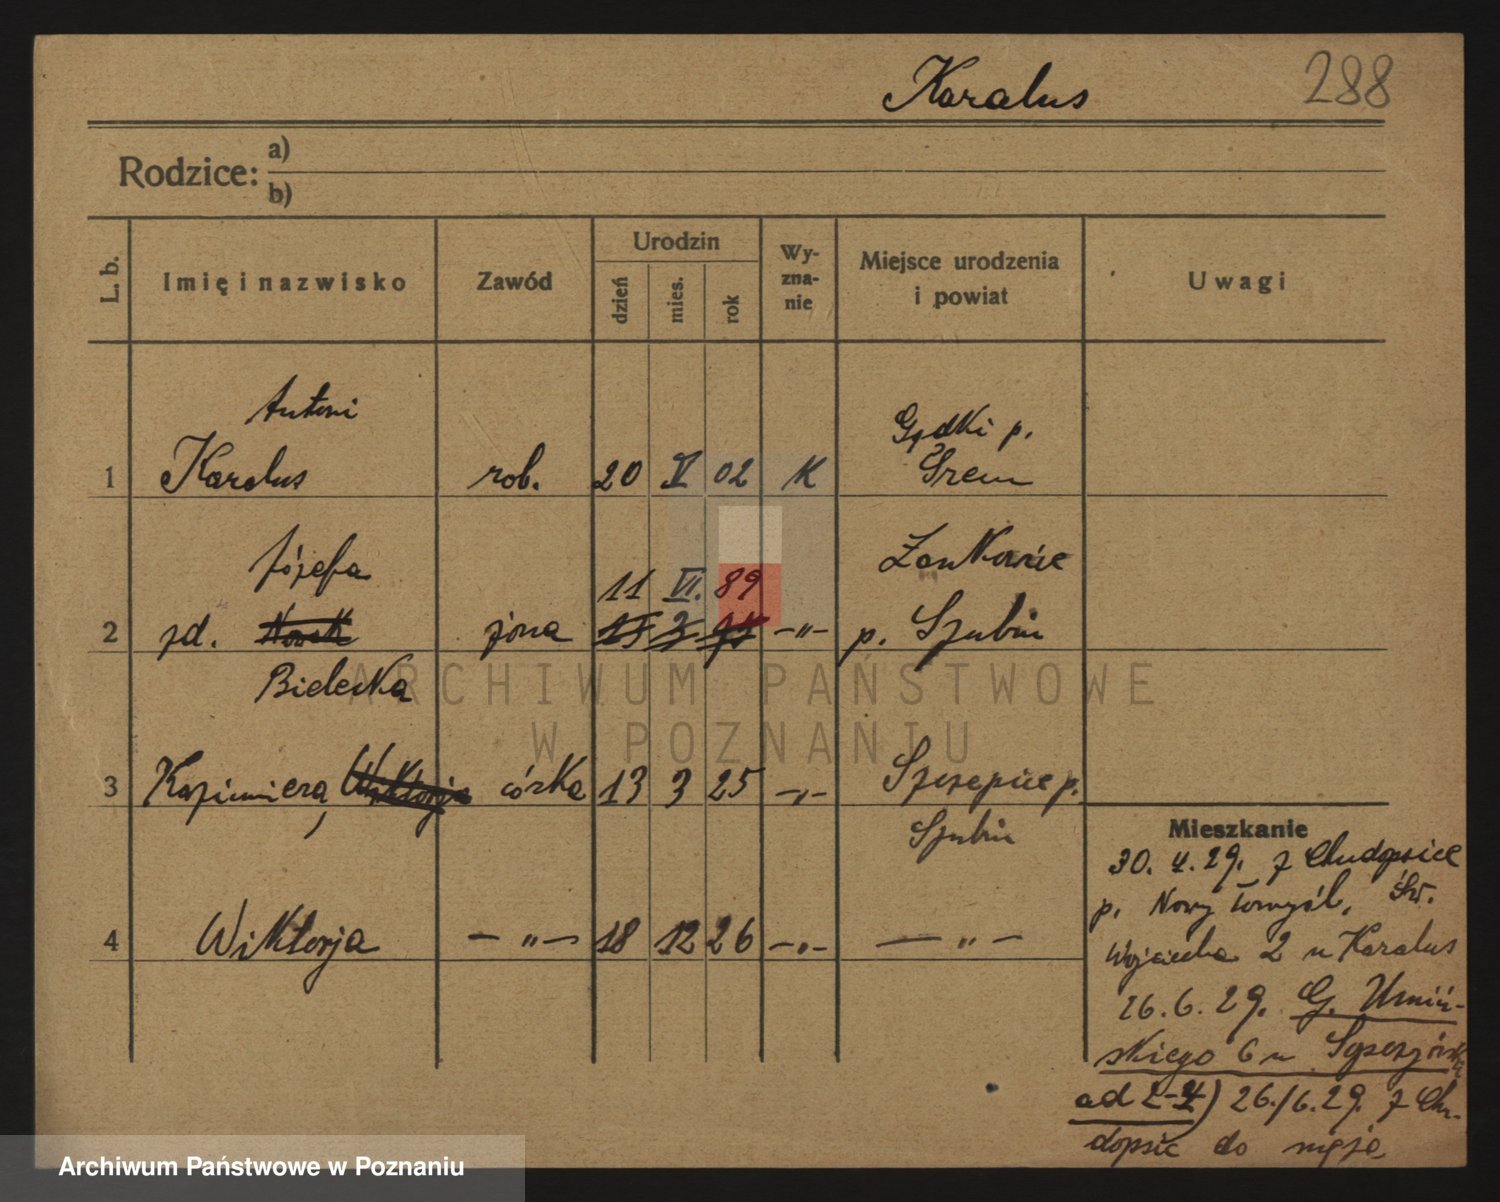 Karalus 288
Rodzice: a)
b)
L. b. Imię i nazwisko Zawód Urodzin dzień mies. rok Wy-zna-nie Miejsce urodzenia i powiat Uwagi
Antoni
1 Karalus rob. 20 V 02 K Gądki p. Śrem
Józefa 11 VI. 89 Żankowie
2 zd. Nowak żona -"- p. Szubin
Bielecka
3 Kazimiera, Wiktorja córka 13 3 25 -"- Szczepice p.
Szubin
4 Wiktorja -"- 18 12 26 -"- -"-
Mieszkanie
30. 4. 29. z Chudopsice
p. Nowy Tomyśl, Św.
Wojciecha 2 u Karalus
26. 6. 29. G. Umiń-
skiego 6 u
ad 2-4) 26./6.29. z Chu-
dopsic do męża
ARCHIWUM PAŃSTWOWE
W POZNANIU
Archiwum Państwowe w Poznaniu